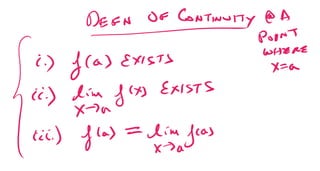 DEFN OF CONTINUITY @ A POINT WHERE x=a
i.) f(a) EXISTS
ii.) lim x→a f(x) EXISTS
iii.) f(a) = lim x→a f(a)